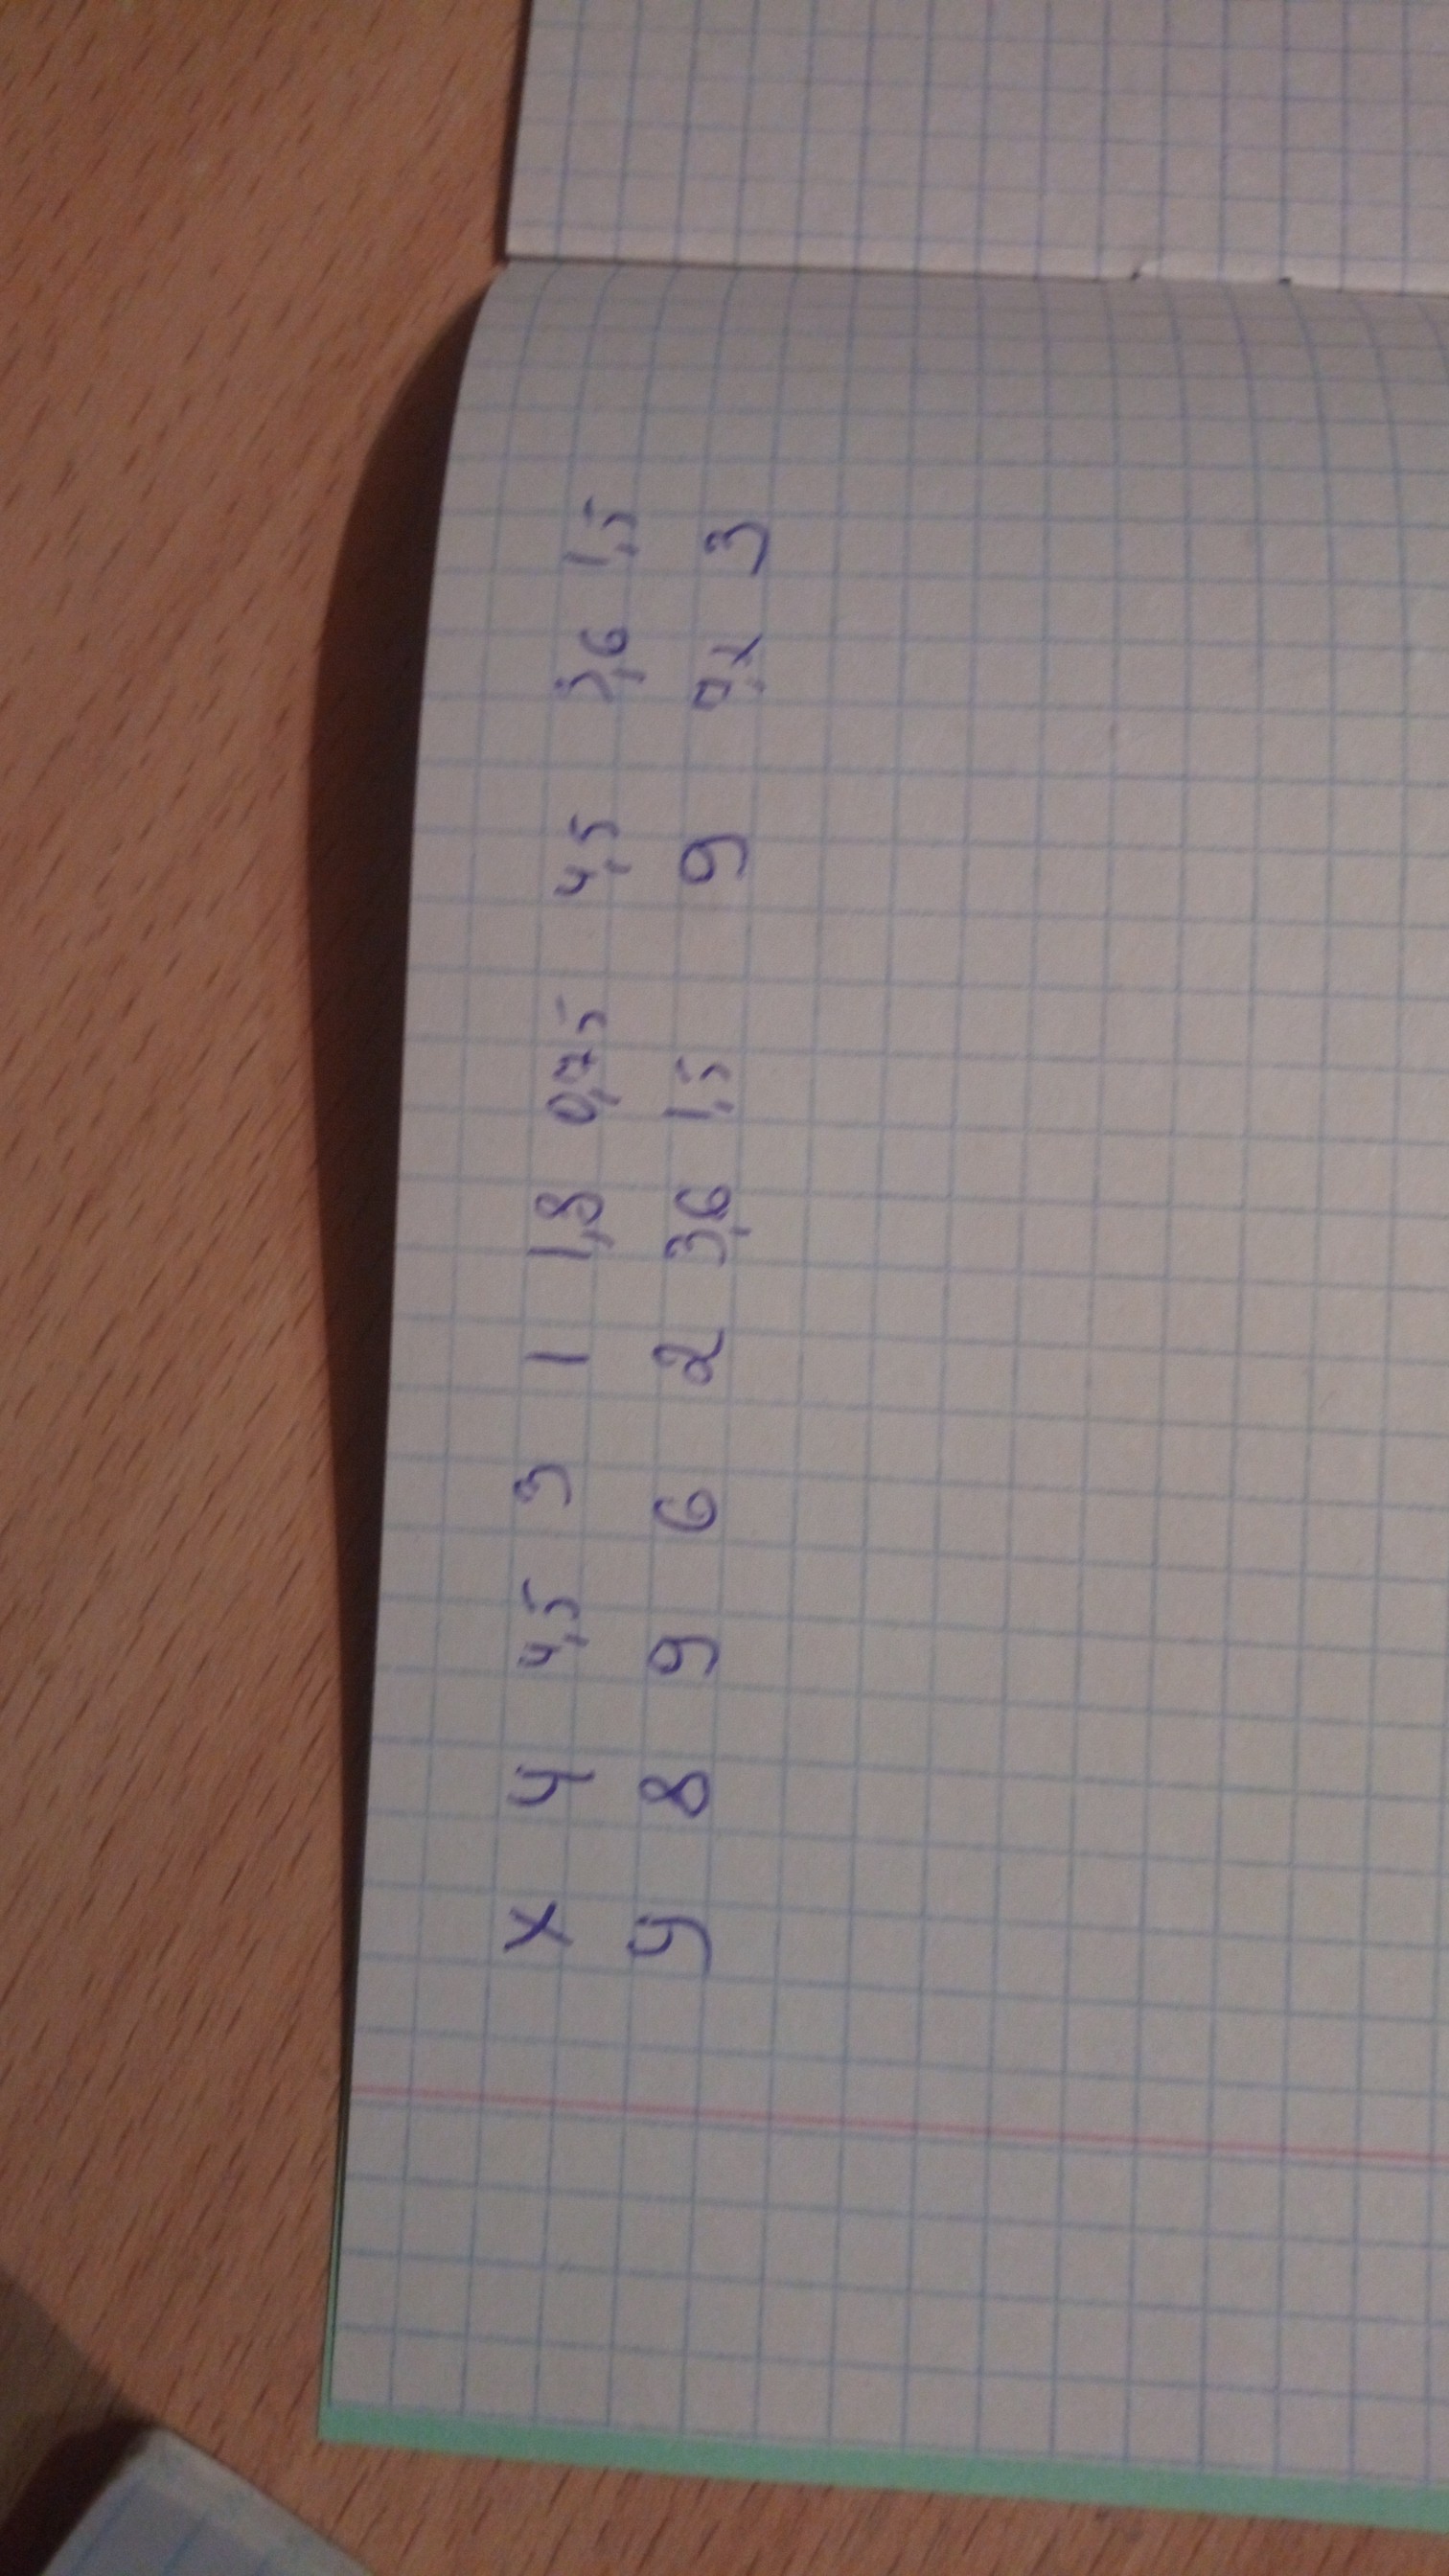 x 4 4,5 3 1 1,8 0,75 4,5 3,6 1,5
y 8 9 6 2 3,6 1,5 9 3